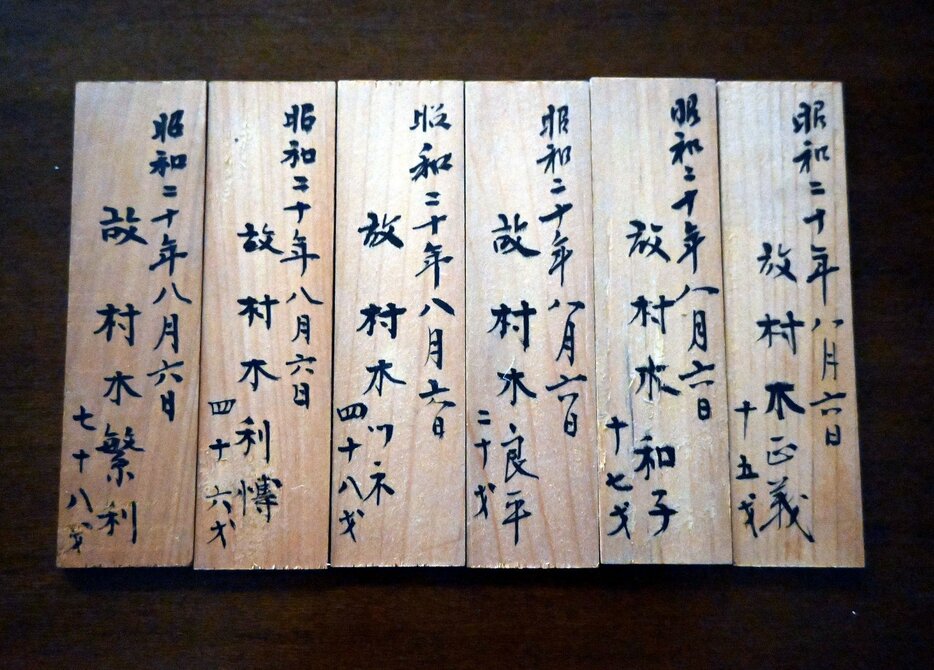 昭和二十年八月六日
故村木正義
十五才
昭和二十年八月六日
故村木和子
十七才
昭和二十年八月六日
故村木良平
二十才
昭和二十年八月六日
故村木ツネ
四十八才
昭和二十年八月六日
故村木利愽
四十六才
昭和二十年八月六日
故村木繁利
七十八才